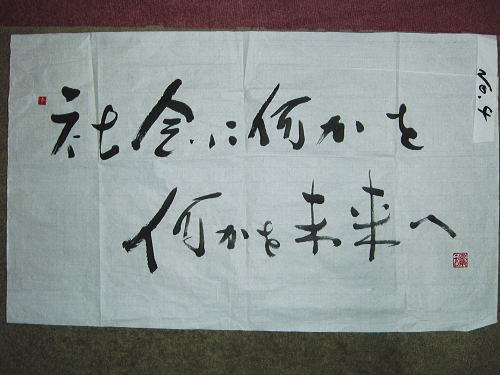 社会に何かを
何かを未来へ
No.4